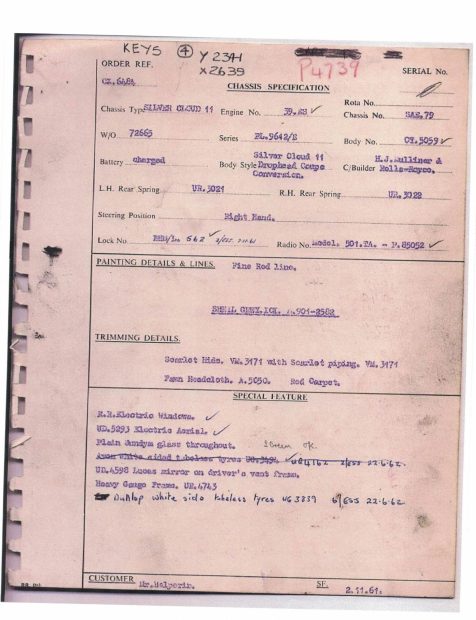 KEYS ④ Y 23H
X2639
P4739
ORDER REF. SERIAL No.
CX.6484
CHASSIS SPECIFICATION
Chassis Type SILVER CLOUD 11 Engine No. 39.ES ✓ Rota No.
Chassis No. SAE.79
W/O 72663 Series PL.9642/E Body No. CT.5059 ✓
Battery charged Body Style Silver Cloud 11 Drophead Coupe Conversion. C/Builder H.J.Mulliner & Rolls-Royce.
L.H. Rear Spring UR.3021 R.H. Rear Spring UR.3022
Steering Position Right Hand.
Lock No. 662 ✓ Radio No. Model. 501.TA. - P.85052 ✓
PAINTING DETAILS & LINES. Fine Red line.
SHELL GREY.ICI. 901-2582
TRIMMING DETAILS.
Scarlet Hide. VM.3171 with Scarlet piping. VM.3171
Fawn Headcloth. A.5050. Red Carpet.
SPECIAL FEATURE
R.R.Electric Windows. ✓
UD.5293 Electric Aerial. ✓
Plain Sundym glass throughout. Screen o/c
Avon white sided tubeless tyres UG.3494 ✓ UG4162 22-6-62.
UD.4598 Lucas mirror on driver's vent frame.
Heavy Gauge Frame. UR.4743
Dunlop white side tubeless tyres UG 3839 22-6-62
CUSTOMER Mr.Halperin. SF. 2.11.61.